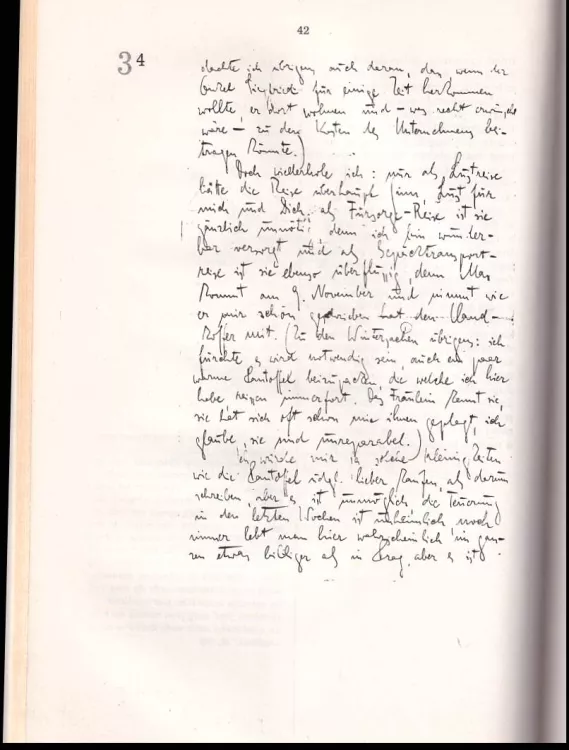 42
34
dachte ich übrigens auch daran, dass wenn der
Onkel Siegfried für einige Zeit herkommen
wollte, er dort wohnen und – was recht
wäre – zu den Kosten des Unternehmens bei-
tragen könnte.)
Doch wiederhole ich: nur als Lustreise
hätte die Reise überhaupt Sinn, Lust für
mich und Dich, als Fürsorge-Reise ist sie
gänzlich unnötig denn ich bin wunder-
bar versorgt und als Gepäcktransport-
reise ist sie ebenso überflüssig, denn Max
kommt am 9. November und nimmt wie
er mir schön geschrieben hat den Hand-
koffer mit. (Zu den Wintersachen übrigens: ich
fürchte es wird notwendig sein, auch ein paar
warme Pantoffel beizupacken, die welche ich hier
habe reissen immerfort. Das Fräulein kennt sie,
sie hat sich oft schon mit ihnen geplagt, ich
glaube, sie sind unreparabel.)
Ich würde mir ja solche Kleinigkeiten
wie die Pantoffel udgl. lieber kaufen, als darum
schreiben, aber es ist unmöglich die Teuerung
in den letzten Wochen ist unheimlich noch
immer lebt man hier wahrscheinlich im gan-
zen etwas billiger als in Prag, aber es ist